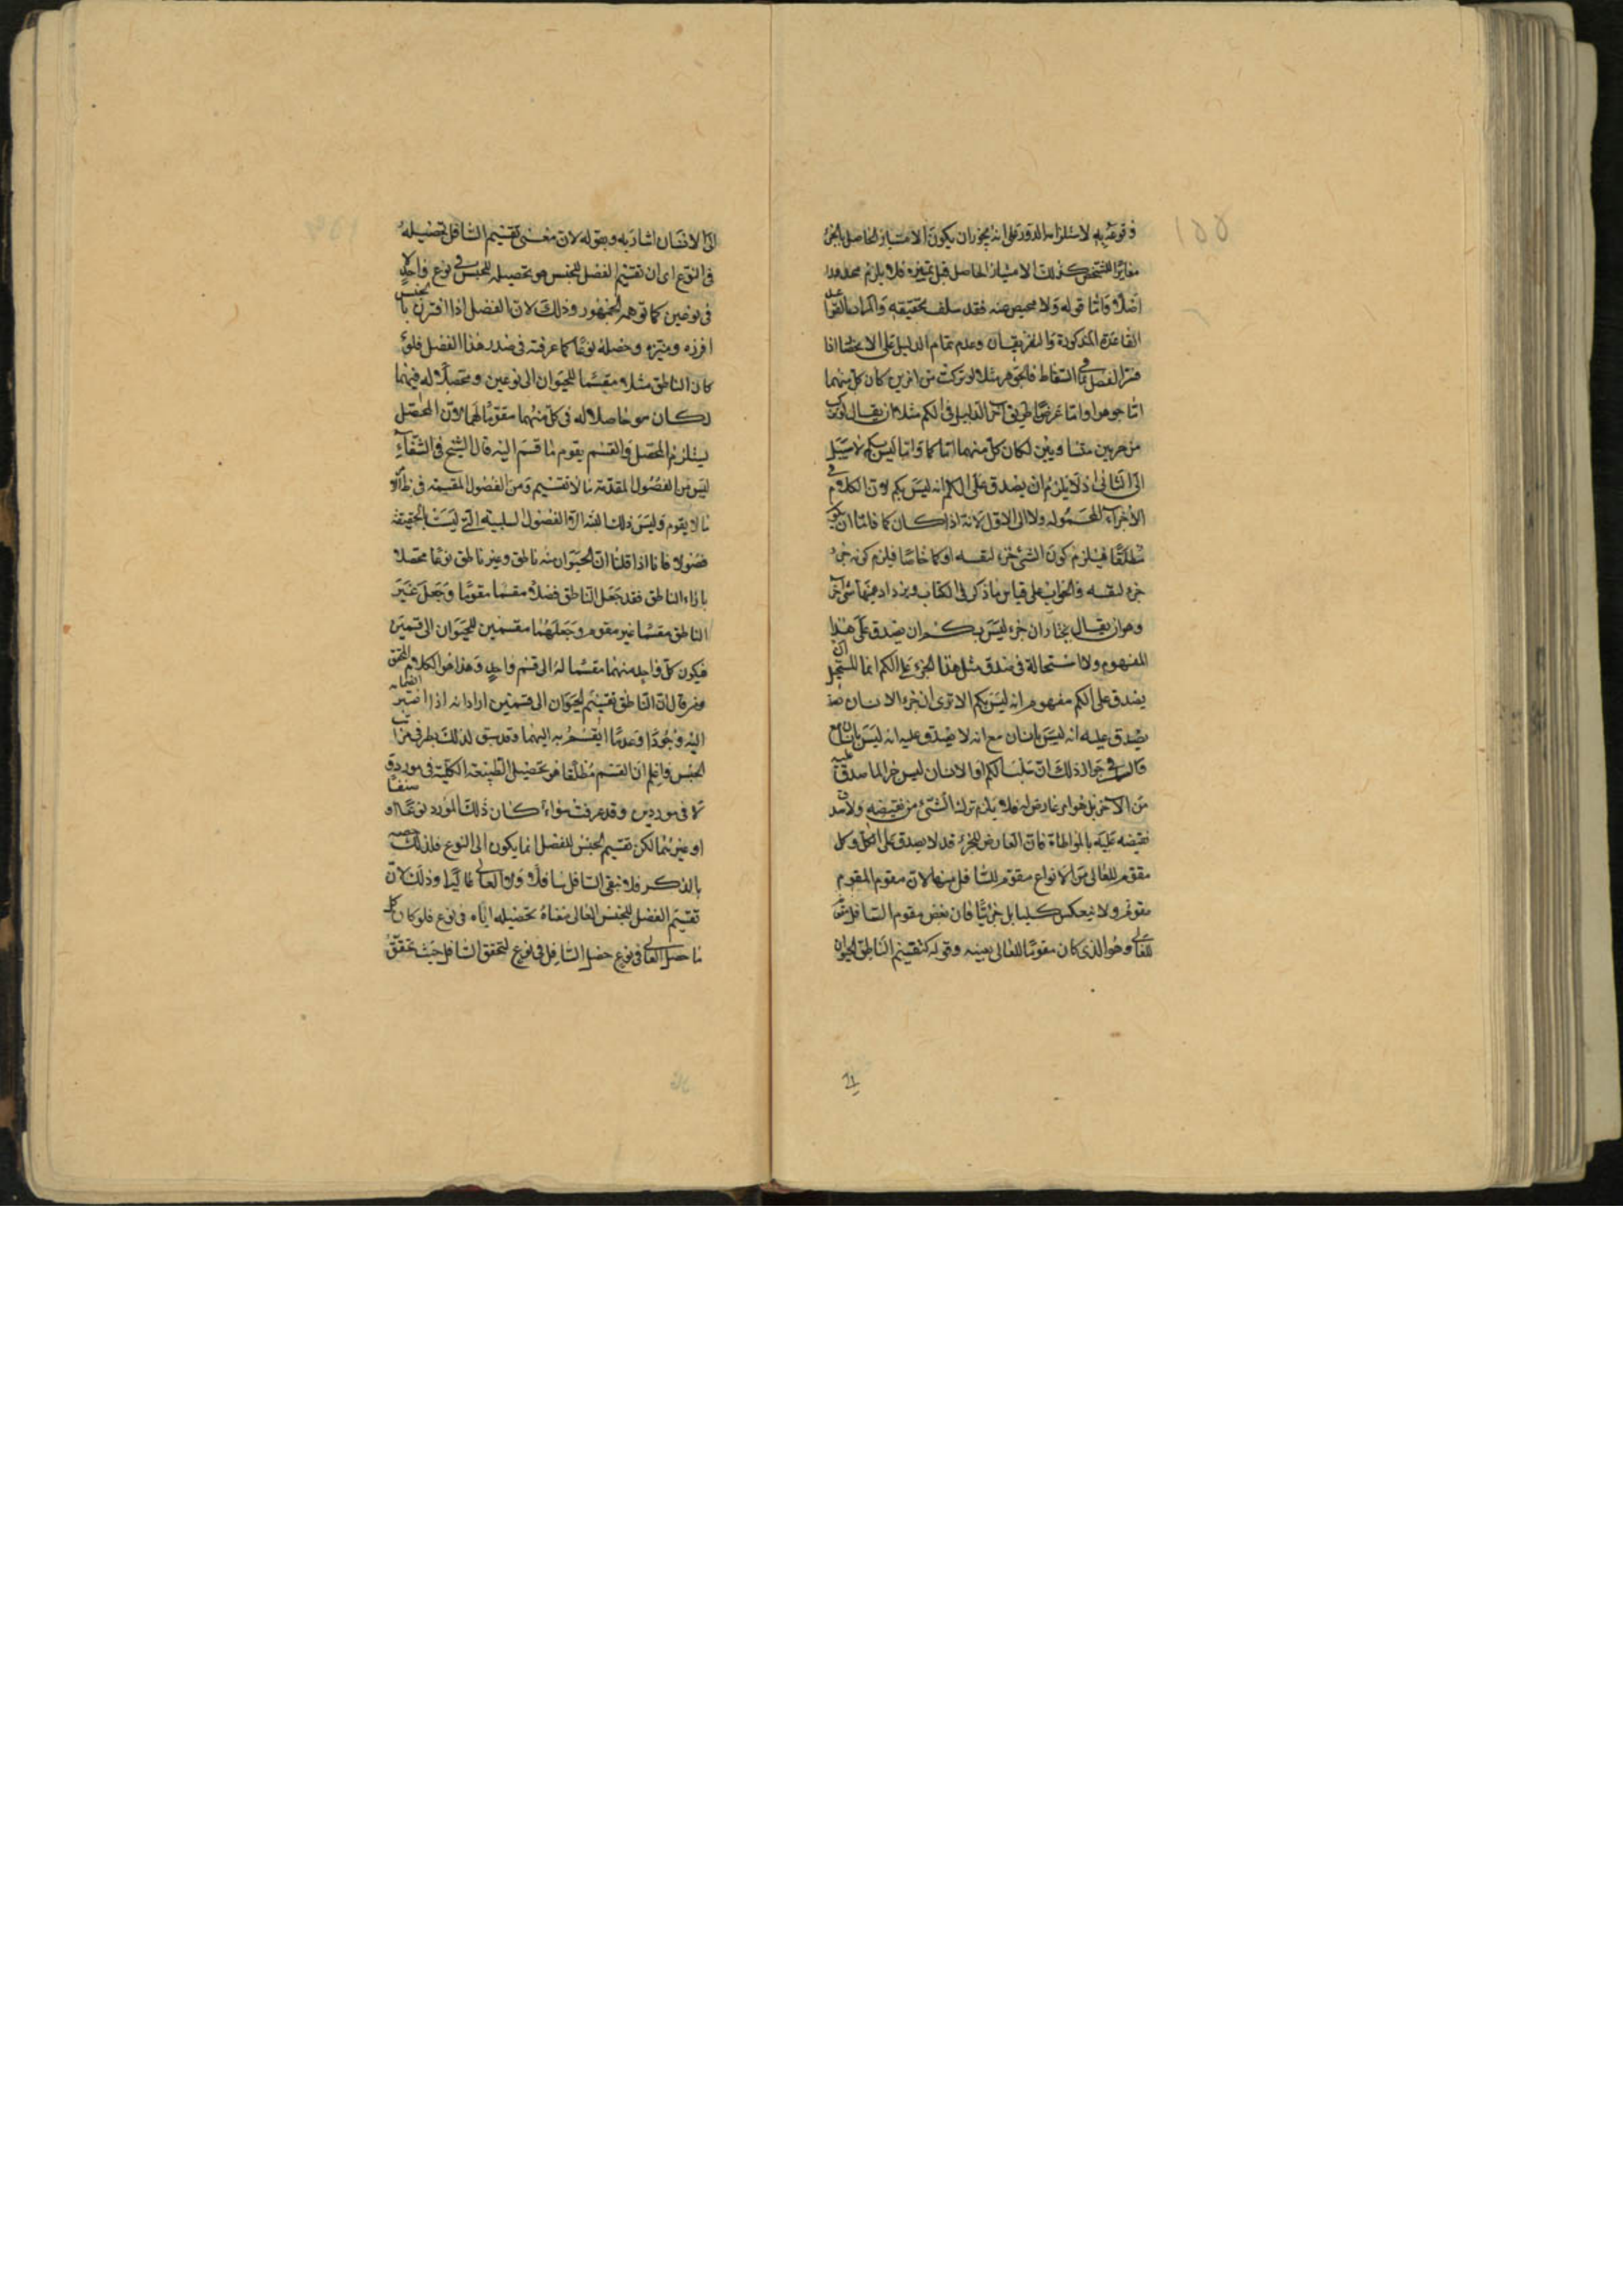 وقوعه به لاستلزامه الدور على انه يجوز ان يكون الامتياز الحاصل
مغايرا للتشخص كذلك الامتياز الحاصل قبل تميزه فلا يلزم
اصلا واما قوله ولا محيص عنه فقد سلف تحقيقه والمراد
القاعدة المذكورة والتفريقان وعدم تمام الدليل على الانحصار اذا
فسر الفصل فالجوهر مثلا لو تركب من امرين كان كل منهما
اما جوهرا واما عرضا في الكم مثلا ان يقال لو تركب
من جزئين متساويين لكان كل منهما اما كما واما ليس بكم لا سبيل
الى الثاني اذ لا يلزم ان يصدق على الكم انه ليس بكم لان الكلام في
الاجزاء المحمولة ولا الى الاول لانه اذا كان كما فاما ان يكون
مطلقا فيلزم كون الشيء جزء لنفسه او كما خاصا فيلزم كونه جزء
جزء لنفسه والجواب على قياس ما ذكر في الكتاب ويزداد
وهو ان يقال نختار ان جزء ليس بكم ان يصدق على هذا
المفهوم ولا استحالة في صدق مثل هذا الجزء على الكم انما المستحيل ان
يصدق على الكم مفهوم انه ليس بكم الا ترى ان جزء الانسان
يصدق عليه انه ليس بانسان مع انه لا يصدق عليه انه ليس بانسان
والسر في جواز ذلك ان سلب الكم او الانسان ليس جزء لما صدق عليه
من الاجزاء بل هو امر عارض له فلا يلزم تركب الشيء من نقيضه ولا صدق
نقيضه عليه بالمواطاة فان العارض للجزء قد لا يصدق على الكل وكل
مقوم للعالى من الانواع مقوم للسافل منها لان مقوم المقوم
مقوم ولا ينعكس كليا بل جزئيا فان بعض مقوم السافل مقوم
للعالى وهو الذى كان مقوما للعالى بعينه وقوله كتقسيم الناطق الحيوان
الى الانسان اشار به وبقوله لان معنى تقسيم السافل تحصيله
فى النوع اى ان تقسيم الفصل للجنس هو تحصيله للجنس فى نوع واحد لا
فى نوعين كما توهمه الجمهور وذلك لان الفصل اذا اقترن بالجنس
افرزه وميزه وحصله نوعا كما عرفته فى صدر هذا الفصل فلو
كان الناطق مثلا مقسما للحيوان الى نوعين ومحصلا له فيهما
لكان هو حاصلا له فى كل منهما مقوما لهما لان المحصل
يستلزم المحصل والقسم يقوم ما قسم اليه قال الشيخ فى الشفاء
ليس من الفصول المقومة ما لا تقسيم ومن الفصول المقسمة فى ظاهر
ما لا يقوم وليس ذلك البتة الا فى الفصول السلبية التى ليست بالحقيقة
فصولا فانا اذا قلنا ان الحيوان منه ناطق وغير ناطق نوعا محصلا
بازاء الناطق فقد جعل الناطق فصلا مقسما مقوما وجعل غير
الناطق مقسما غير مقوم وجعلهما مقسمين للحيوان الى قسمين
فيكون كل واحد منهما مقسما له الى قسم واحد وهذا هو الكلام المحقق
ومن قال ان الناطق تقسيم الحيوان الى قسمين اراد انه اذا اعتبر انضمامه
اليه وجودا وعدما انقسم به اليهما وقد سبق لذلك طرف فى مراتب
الجنس واعلم ان القسم مطلقا هو تحصيل الطبيعة الكلية فى مورد
لا فى موردين وقد عرفت سواء كان ذلك المورد نوعا او صنفا
او غيرهما لكن تقسيم الجنس للفصل انما يكون الى النوع فلذلك خصه
بالذكر فلا يبقى السافل سافلا ولا العالى عاليا وذلك لان
تقسيم الفصل للجنس العالى معناه تحصيله اياه فى نوع فلو كان كل
ما حصل العالى فى نوع حصل السافل فى نوع لتحقق السافل حيث تحقق